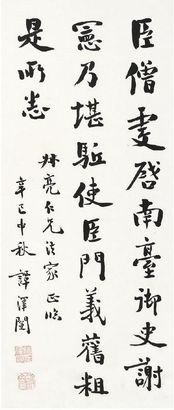 臣僧虔啓南臺御史謝
憲乃堪驅使臣門義舊粗
是所悉
叔亮仁兄法家正臨
辛巳中秋譚澤闓